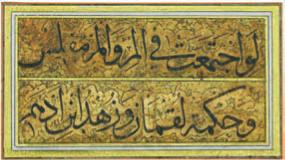 لو اجتمعت في المرء والمرء مفلس
وحكمة لقمان وزهد ابن ادهم